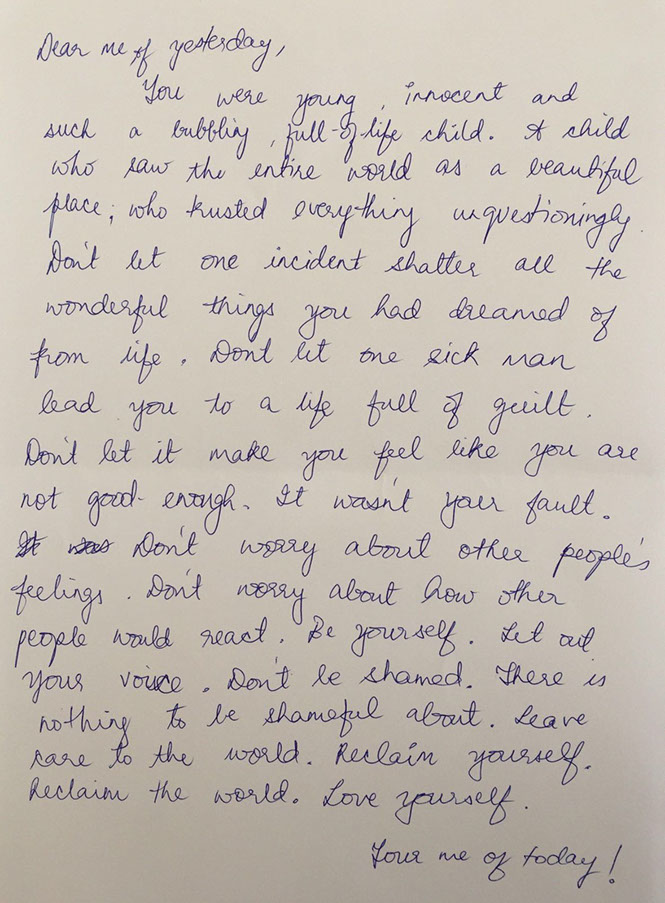 Dear me of yesterday,
You were young, innocent and
such a bubbling, full-of-life child. A child
who saw the entire world as a beautiful
place; who trusted everything unquestioningly.
Don't let one incident shatter all the
wonderful things you had dreamed of
from life. Dont let one sick man
lead you to a life full of guilt.
Don't let it make you feel like you are
not good enough. It wasn't your fault.
It was Don't worry about other people's
feelings. Don't worry about how other
people would react. Be yourself. Let out
your voice. Don't be shamed. There is
nothing to be shameful about. Leave
care to the world. Reclaim yourself.
Reclaim the world. Love yourself.
Your me of today!